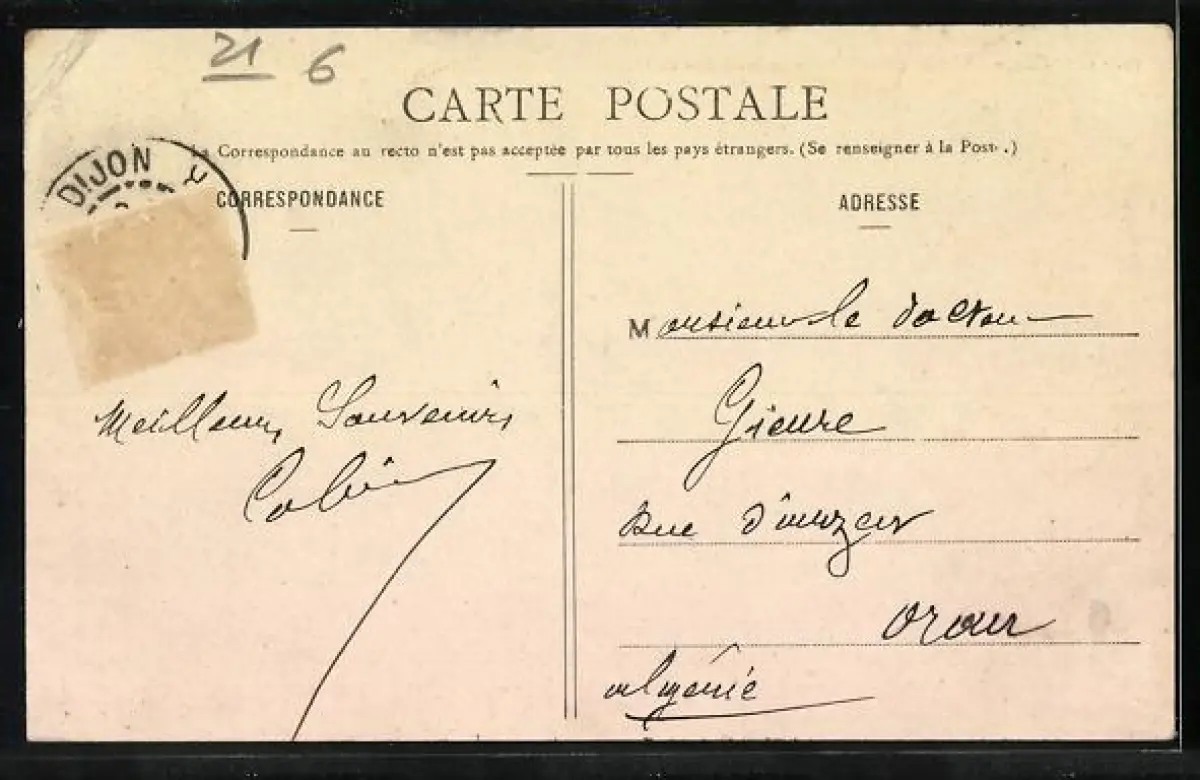 21 6
CARTE POSTALE
La Correspondance au recto n'est pas acceptée par tous les pays étrangers. (Se renseigner à la Poste.)
DIJON
CORRESPONDANCE
ADRESSE
Monsieur le docteur
Gieure
Meilleurs Souvenirs
Rue
Oran
Algérie